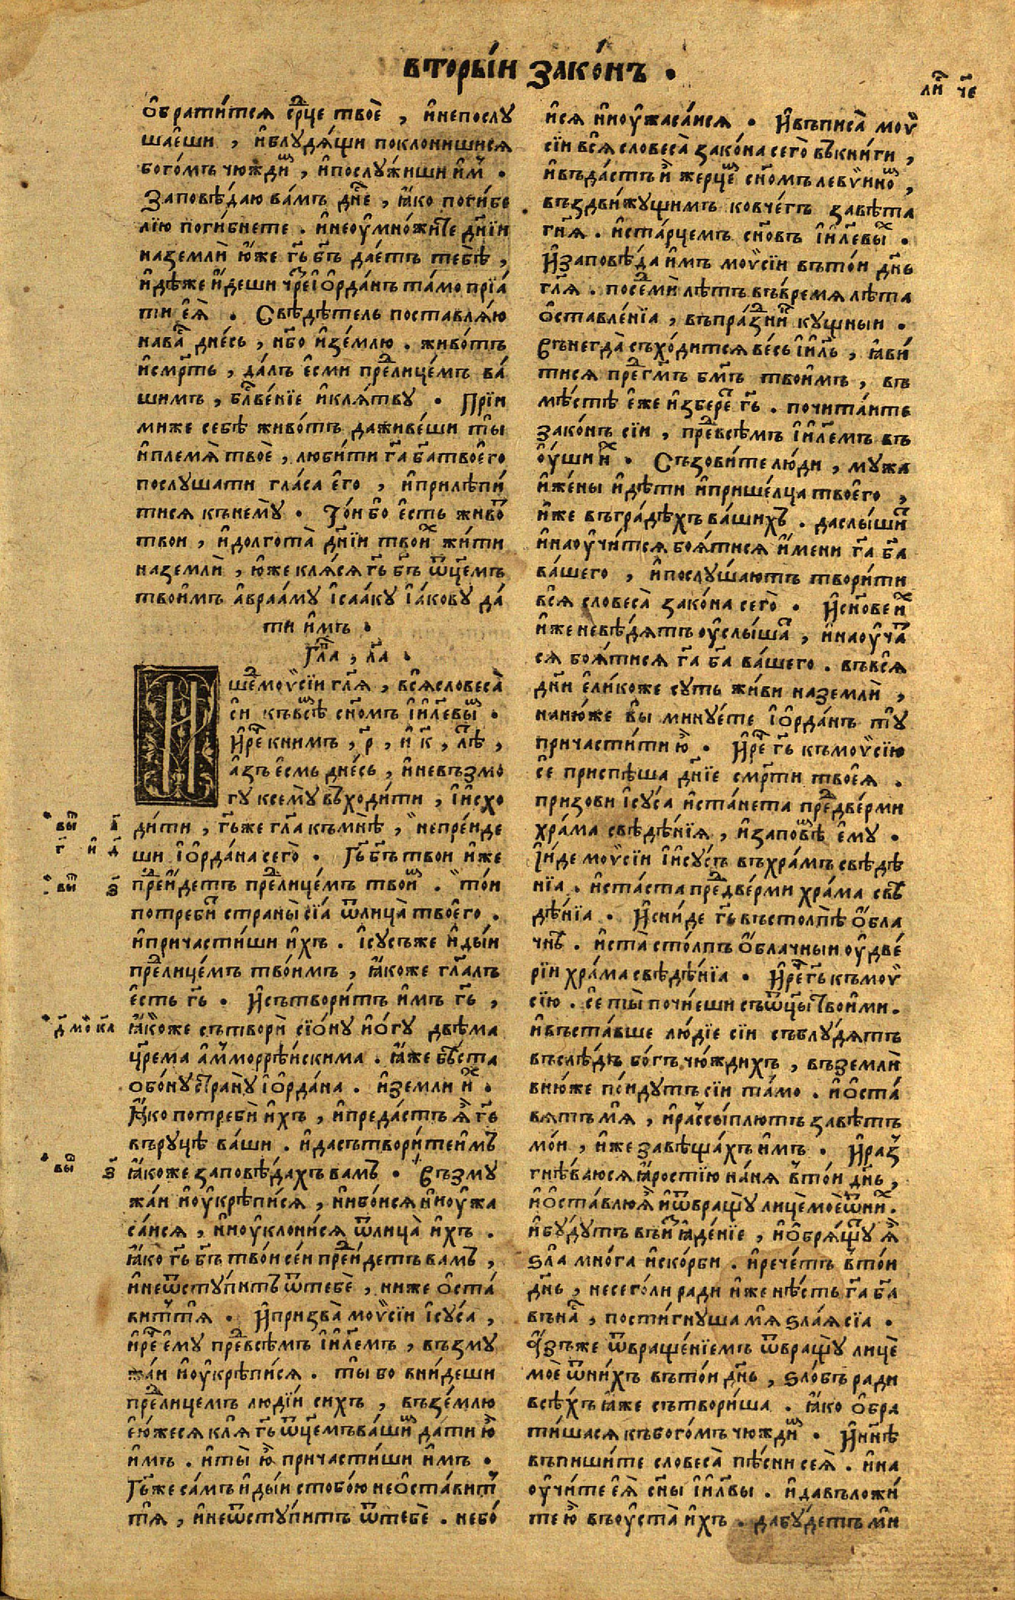 вторы́и зако́нъ .
ли҇ че҃
ѡ҆брати́тся ср҃це твоѐ , и҆непослу
шае́ши , и҆блудя́щи поклонишися
бого́мъ чюжди́мъ , и҆послу́жиши и҆́мъ .
Заповѣ́даю ва́мъ дн҃е , ꙗ҆́ко поги́бе
лїю поги́бнете . и҆неоумно́жите дн҃їи
наземлѝ ю҆́же гь҃ бг҃ъ дае́тъ тебѣ̀ ,
и҆дѣ́же и҆́деши чре́ї҆ѻрда́нъ та́мо прїа
ти є҆ѧ̀ . Свѣдѣ́тель поставля́ю
нава̀ дне́сь , нб҃о и҆зе́млю . живо́тъ
и҆сме́рть , да́лъ є҆сми пре҇лице́мъ ва́
шимъ , бл҃ве́нїе и҆кля́тву . Прїи
миже себѣ̀ живо́тъ дажи́веши ты̀
и҆племѧ̀ твоѐ , люби́ти га҃ ба҃твоего̀
послушати гла́са є҆го̀ , и҆прилѣпи́
тися къ нему̀ . То́и бо є҆́сть живо́
твои , и҆долгота̀ дн҃їи твои҇ жи́ти
наземлѝ , ю҆́же кля́ся гь҃ бг҃ъ ѿц҃емъ
твои́мъ а҆враа́му і҆саа́ку і҆а́кову да́
ти и҆́мъ .
Гла҇ , л҃а .
И
ше҇мої҆си́и гл҃я , вся̀словеса̀
сѝ къвсѣ҇ сн҃омъ і҆и҃левы҇ .
И҆рече҇ кни́мъ , р҃ , и҆ к҃ , лѣ҇ ,
а҆́зъ є҆́смь дне́сь , и҆невъзмо
гу̀ ксему̀ въходи́ти , и҆и҆схо
ди́ти , гь҃же гл҃а къмнѣ̀ , непре́иде
ши і҆ѻрда́на сего̀ . Гь҃ бг҃ъ твои и҆́же
пре҇и́детъ пре҇лице́мъ твои́мъ . то́и
потреби҇ страны̀ сїа̀ ѿлица̀ твоего̀ .
и҆причасти́ши и҆́хъ . і҆сусъже и҆ды́и
пре҇лице́мъ твои́мъ , ꙗ҆́коже гл҃алъ
є҆́сть гь҃ . И҆сътвори́тъ и҆́мъ гь҃ ,
ꙗ҆́коже сътворѝ сїѻ́ну и҆ѻ́гу двѣ́ма
цр҃ема а҆мморре́искима . ꙗ҆́же бѣ́ста
обону́страну̀ і҆ѻрда́на . и҆землѝ и҆́хъ .
ꙗ҆́ко потребѝ и҆́хъ , и҆преда́стъ ꙗ҆̀ гь҃
въру́цѣ ва́ши . и҆дасътвори́теи҆́мъ
ꙗ҆́коже заповѣ́дахъ вамъ . Възму
жаи и҆оукрѣпи́ся , и҆небо́ися и҆неоужа
са́ися , и҆неоуклони́ся ѿлица̀ и҆́хъ .
ꙗ҆́ко гь҃ бг҃ъ тво́и се́и пре҇и́детъ вамъ ,
и҆неѿсту́питъ ѿтебѐ , ниже ѻ҆ста́
вит́тя . И҆призва̀ мої҆си́и і҆су́са ,
и҆рече҇ є҆му̀ пре҇всѣмъ і҆и҃лемъ , възму
жаи и҆оукрѣпи́ся . ты̀ бо вни́деши
пре҇лицемъ люді́и си́хъ , въземлю
є҆ю́жеся кля́ гь҃ ѿц҃емъва́ши҇ да́ти ю҆̀
и҆́мъ . и҆ты̀ ю҆̀ причасти́ши и҆́мъ .
Гь҃же са́мъ и҆ды́и стобо́ю неѻ҆ста́вит҇
тя , и҆неѿсту́питъ ѿтебѐ . небо́
и҆ся и҆неоужаса́ися . И҆въписа̀ мої҆
си́и вся̀словеса̀ зако́на сего̀ въкни́ги ,
и҆въда́стъ и҆̀ жерце҇ сн҃омъ леви́ино҇ ,
въздви́жущимъ ковче́гъ завѣ́та
гн҃я . и҆ста́рцемъ сн҃овъ і҆и҃левы҇ .
И҆заповѣ́да и҆́мъ мої҆си́и въто́и дн҃ь
гл҃я . посе҇ми лѣ́тъ въвремя лѣ́та
ѻ҆ставле́нїа , въпра́здни҇ ку́щныи .
Вънегда̀ съхо́дится ве́сь і҆и҃ль , ꙗ҆ви́
тися пре҇гм҃ъ бм҃ъ твои́мъ , въ
мѣ́стѣ е҆́же и҆збере́ гь҃ . почита́итъ
зако́нъ сїи , пре҇всѣ́мъ і҆и҃лемъ въ
оу҆́ши и҆́хъ . Съзови́те лю́ди , му́жа
и҆же́ны и҆дѣ́ти и҆прише́лца твоего̀ ,
и҆́же въгра́дѣхъ ва́шихъ . даслы́ши҇
и҆наоучи́тся боя́тися и҆́мени га҃ ба҃
ва́шего , и҆послу́шаютъ твори́ти
вся̀ словеса̀ зако́на сего̀ . И҆сн҃ове и҆́хъ
и҆́же невѣ́дятъ оуслы́ша҇ , и҆наоуча́
ся боя́тися га҃ ба҃ ва́шего . въвся̀
дн҃и є҆ли́коже су́ть жи́ви наземлѝ ,
наню́же вы̀ минуе́те і҆ѻрда́нъ ту̀
причасти́ти ю҆̀ . И҆рече҇ гь҃ къмої҆си́ю
се́ приспѣ́ша дн҃їе сме́рти твоея̀ .
призови і҆су́са и҆ста́нета пре҇две́рми
хра́ма свѣдѣ́нїя , и҆заповѣ҇ є҆му̀ .
И҆и́де мої҆си́и и҆і҆су́съ въхра́мъ свѣдѣ́
нїа . и҆ста́ста пре҇две́рми хра́ма свѣ
дѣ́нїа . И҆сни́де гь҃ въстолпѣ̀ ѻ҆́бла
чнѣ҇ . и҆ста̀ сто́лпъ ѻ҆́блачныи оудве́
рїи хра́ма свѣдѣ́нїа . И҆рече҇ гь҃ къмої҆
сїю . се́ ты̀ почи́еши съѿц҃ы твои́ми .
и҆въста́вше лю́дїе сїи съблу́дятъ
въслѣ́дъ бо́гъ чю́ждихъ , въземлѝ
вню́же по́идутъ сїи та́мо . и҆ѻ҆ста́
вятъ мя̀ , и҆рассы́плютъ завѣ́тъ
мо́и , и҆́же завѣща́хъ и҆́мъ . И҆раз
гнѣ́ваюся ꙗ҆́ростїю на́ня в҆то́и дн҃ь ,
и҆ѻ҆ста́влюꙗ҆̀ и҆ѿвращу̀ лице́ моѐѿни҇ .
и҆бу́дутъ въи҆ꙗ҆де́нїе , и҆ѻ҆бря́щу ꙗ҆̀
ѕла̀ мно́га и҆ско́рби . и҆рече́тъ вто́и
дн҃ь , несего́ли ради и҆́же нѣ́сть га҃ ба҃
въна҇ , пости́гнуша мя̀ ѕла́я сїа .
А҆́зъже ѿвраще́нїемъ ѿвращу̀ лицѐ
моѐ ѿни́хъ въто́и дн҃ь , ѕло́бъ ради
всѣ́хъ ꙗ҆́же сътвори́ша . ꙗ҆́ко ѻ҆бра
ти́шася къбого́мъ чюжди҇ . И҆нн҃ѣ
въпиши́те словеса̀ пѣ́сни сея̀ . и҆на
оучи́те є҆я̀ сн҃ы і҆и҃лвы . и҆давъложи́
те ю҆̀ въоуста̀ и҆́хъ . дабу́детъ мѝ
вы҇ г҃
г҃ и҆ д҃
вы҇ з҃
д҃ мо҇ ка҃
вы҇ з҃